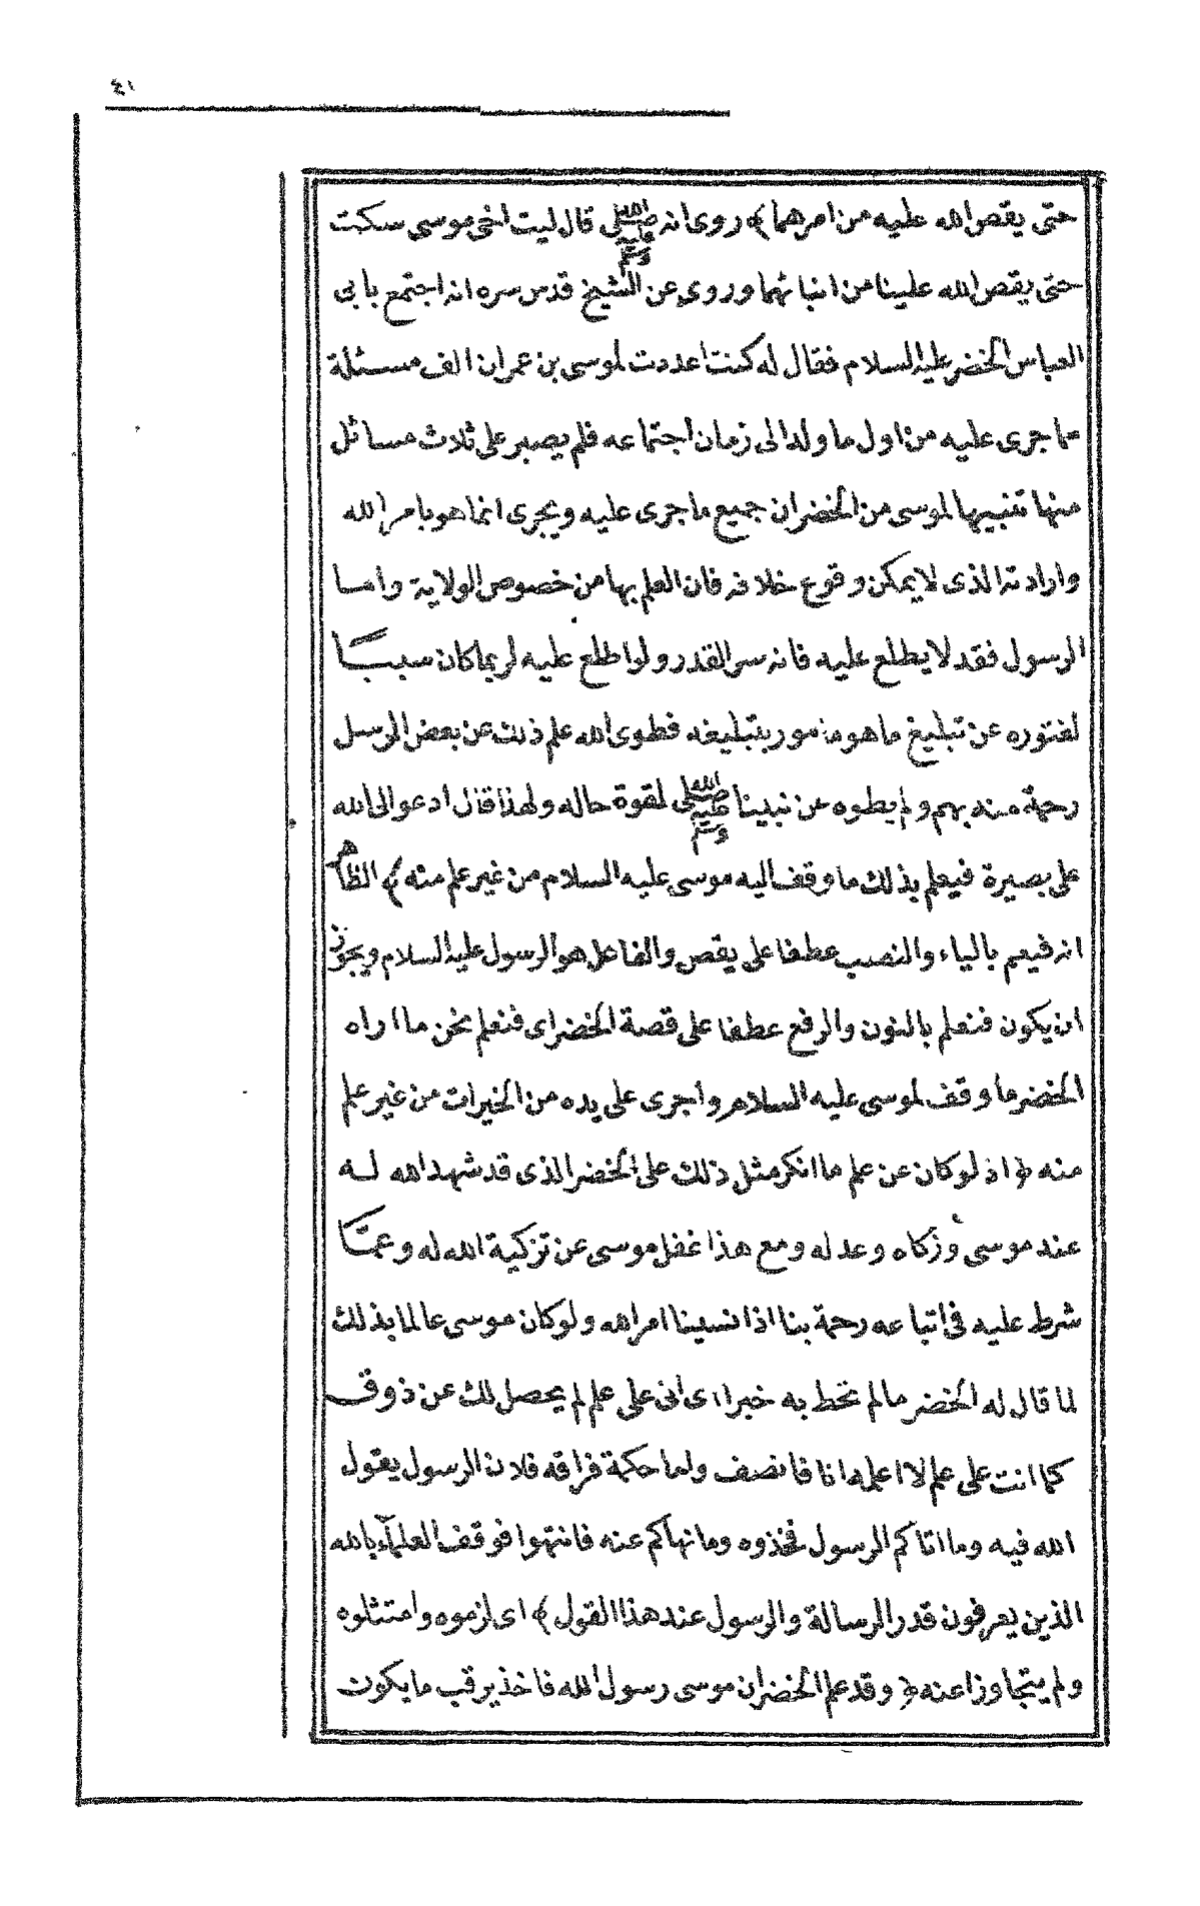 ٤١
حتى يقص الله عليه من امرهما﴾ روى انه صلى الله عليه وسلم قال ليت اخى موسى سكت
حتى يقص الله علينا من انبائهما وروى عن الشيخ قدس سره انه اجتمع بابى
العباس الخضر عليه السلام فقال له كنت اعددت لموسى بن عمران الف مسئلة
مما جرى عليه من اول ما ولد الى زمان اجتماعه فلم يصبر على ثلاث مسائل
منها تنبيها لموسى من الخضر ان جميع ما جرى عليه ويجرى انما هو بامر الله
وارادته الذى لا يمكن وقوع خلافه فان العلم بها من خصوص الولاية واما
الرسول فقد لا يطلع عليه فانه سر القدر ولو اطلع عليه لربما كان سببا
لفتوره عن تبليغ ما هو مأمور بتبليغه فطوى الله علم ذلك عن بعض الرسل
رحمة منه بهم ولم يطوه عن نبينا صلى الله عليه وسلم لقوة حاله ولهذا قال ادعو الى الله
على بصيرة فيعلم بذلك ما وقف اليه موسى عليه السلام من غير علم منه﴾ الظاهر
انه فيعلم بالياء والنصب عطفا على يقص والفاعل هو الرسول عليه السلام ويجوز
ان يكون فنعلم بالنون والرفع عطفا على قصة الخضر اى فنعلم نحن ما اراه
الخضر ما وقف لموسى عليه السلام واجرى على يده من الخيرات من غير علم
منه ﴿اذ لو كان عن علم ما انكر مثل ذلك على الخضر الذى قد شهد الله له
عند موسى وزكاه وعدله ومع هذا غفل موسى عن تزكية الله له وعما
شرط عليه فى اتباعه رحمة بنا اذا نسينا امر الله ولو كان موسى عالما بذلك
لما قال له الخضر ما لم تحط به خبرا اى انى على علم لم يحصل لك عن ذوق
كما انت على علم لا اعلمه انا فانصف ولما حكمة فراقه فلان الرسول يقول
الله فيه وما اتاكم الرسول فخذوه وما نهاكم عنه فانتهوا فوقف العلماء بالله
الذين يعرفون قدر الرسالة والرسول عند هذا القول﴾ اى لزموه وامتثلوه
ولم يتجاوزا عنه ﴿وقد علم الخضر ان موسى رسول الله فاخذ يرقب ما يكون